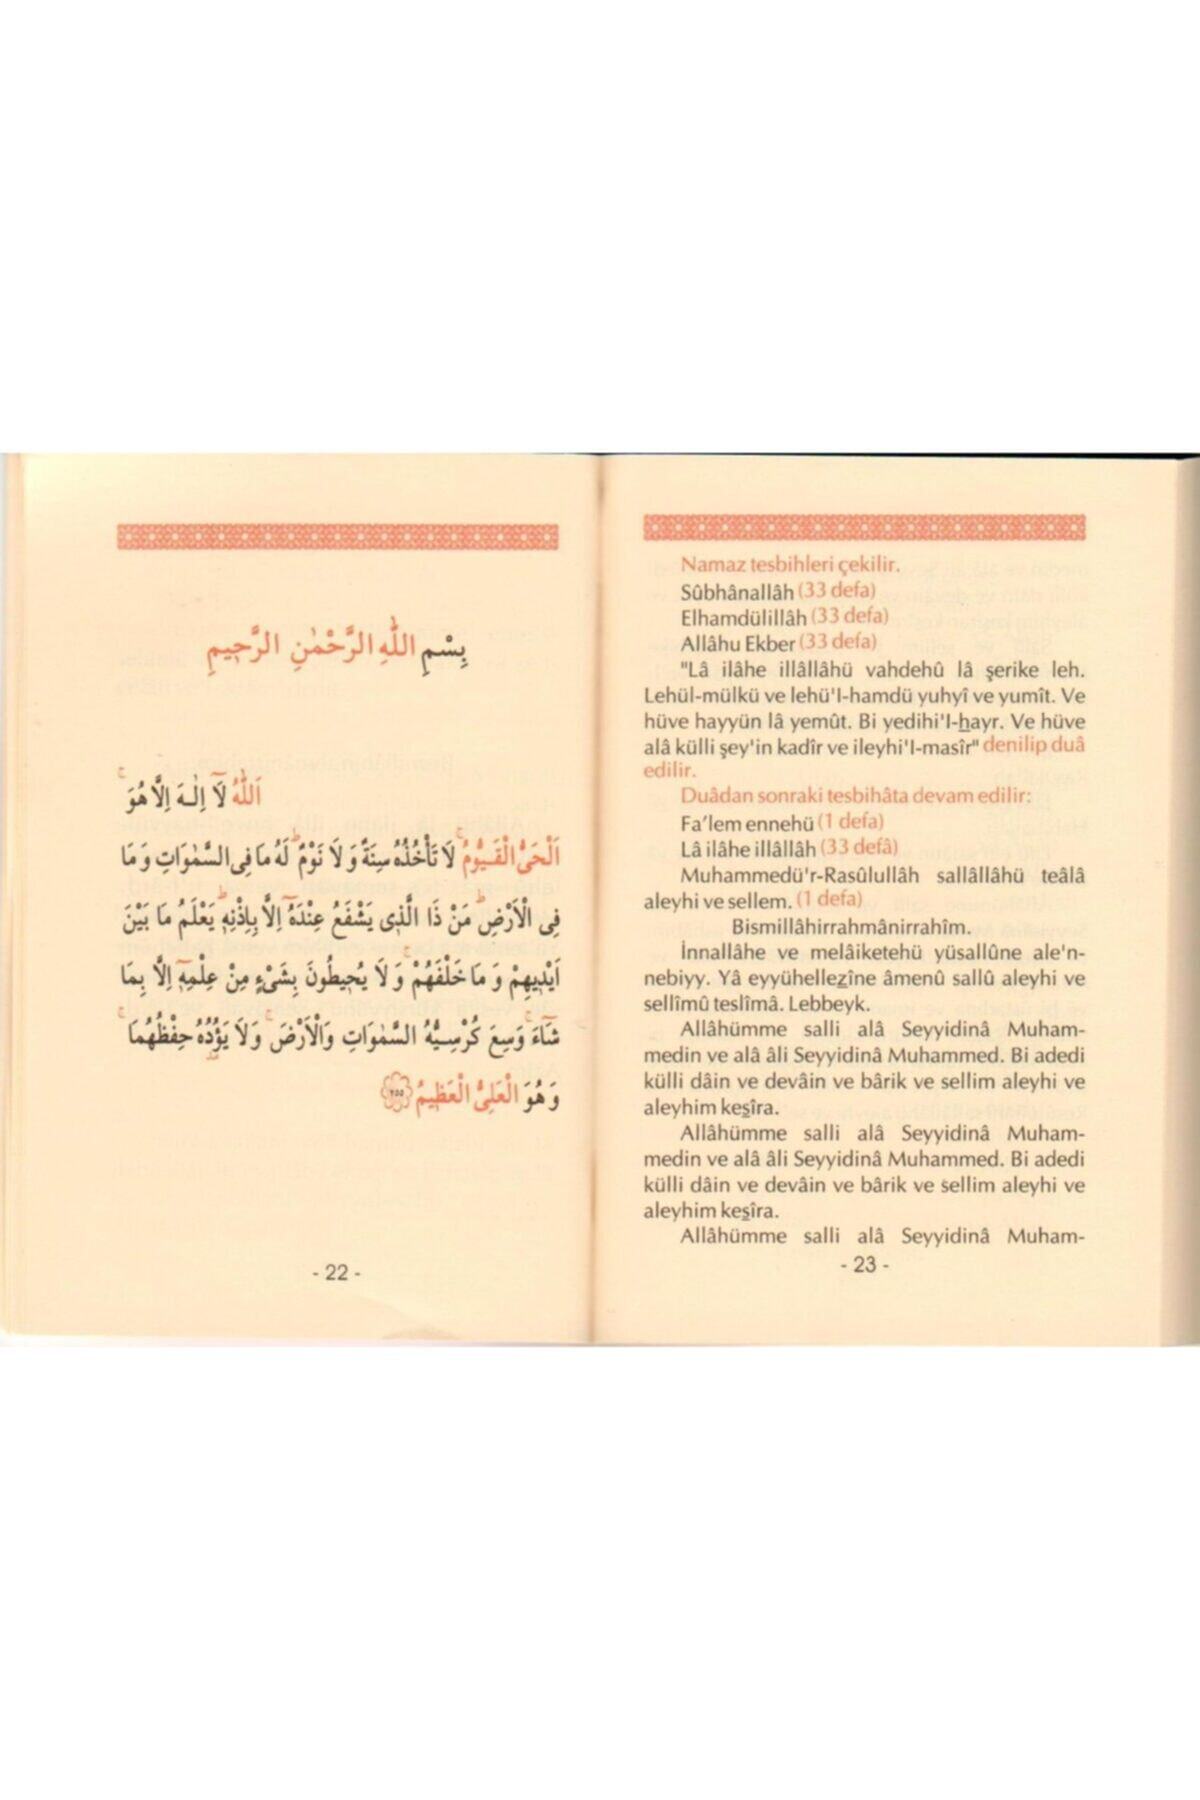 بِسْمِ اللّٰهِ الرَّحْمٰنِ الرَّحٖيمِ
اَللّٰهُ لَٓا اِلٰهَ اِلَّا هُوَۚ
اَلْحَىُّ الْقَيُّومُۚ لَا تَأْخُذُهُ سِنَةٌ وَلَا نَوْمٌؕ لَهُ مَا فِى السَّمٰوَاتِ وَمَا
فِى الْاَرْضِؕ مَنْ ذَا الَّذٖى يَشْفَعُ عِنْدَهُٓ اِلَّا بِاِذْنِهٖؕ يَعْلَمُ مَا بَيْنَ
اَيْدٖيهِمْ وَمَا خَلْفَهُمْۚ وَلَا يُحٖيطُونَ بِشَىْءٍ مِنْ عِلْمِهٖٓ اِلَّا بِمَا
شَٓاءَۚ وَسِعَ كُرْسِيُّهُ السَّمٰوَاتِ وَالْاَرْضَۚ وَلَا يَؤُدُهُ حِفْظُهُمَاۚ
وَهُوَ الْعَلِىُّ الْعَظٖيمُ ﴿٢٥٥﴾
- 22 -
Namaz tesbihleri çekilir.
Sûbhânallâh (33 defa)
Elhamdülillâh (33 defa)
Allâhu Ekber (33 defa)
"Lâ ilâhe illâllâhü vahdehû lâ şerike leh.
Lehül-mülkü ve lehü'l-hamdü yuhyî ve yumît. Ve
hüve hayyün lâ yemût. Bi yedihi'l-hayr. Ve hüve
alâ külli şey'in kadîr ve ileyhi'l-masîr" denilip duâ
edilir.
Duâdan sonraki tesbihâta devam edilir:
Fa’lem ennehü (1 defa)
Lâ ilâhe illâllâh (33 defâ)
Muhammedü'r-Rasûlullâh sallâllâhü teâlâ
aleyhi ve sellem. (1 defa)
Bismillâhirrahmânirrahîm.
İnnallâhe ve melâiketehü yüsallûne ale'n-
nebiyy. Yâ eyyühellezîne âmenû sallû aleyhi ve
sellîmû teslîmâ. Lebbeyk.
Allâhümme salli alâ Seyyidinâ Muham-
medin ve alâ âli Seyyidinâ Muhammed. Bi adedi
külli dâin ve devâin ve bârik ve sellim aleyhi ve
aleyhim kesîra.
Allâhümme salli alâ Seyyidinâ Muham-
medin ve alâ âli Seyyidinâ Muhammed. Bi adedi
külli dâin ve devâin ve bârik ve sellim aleyhi ve
aleyhim kesîra.
Allâhümme salli alâ Seyyidinâ Muham-
- 23 -